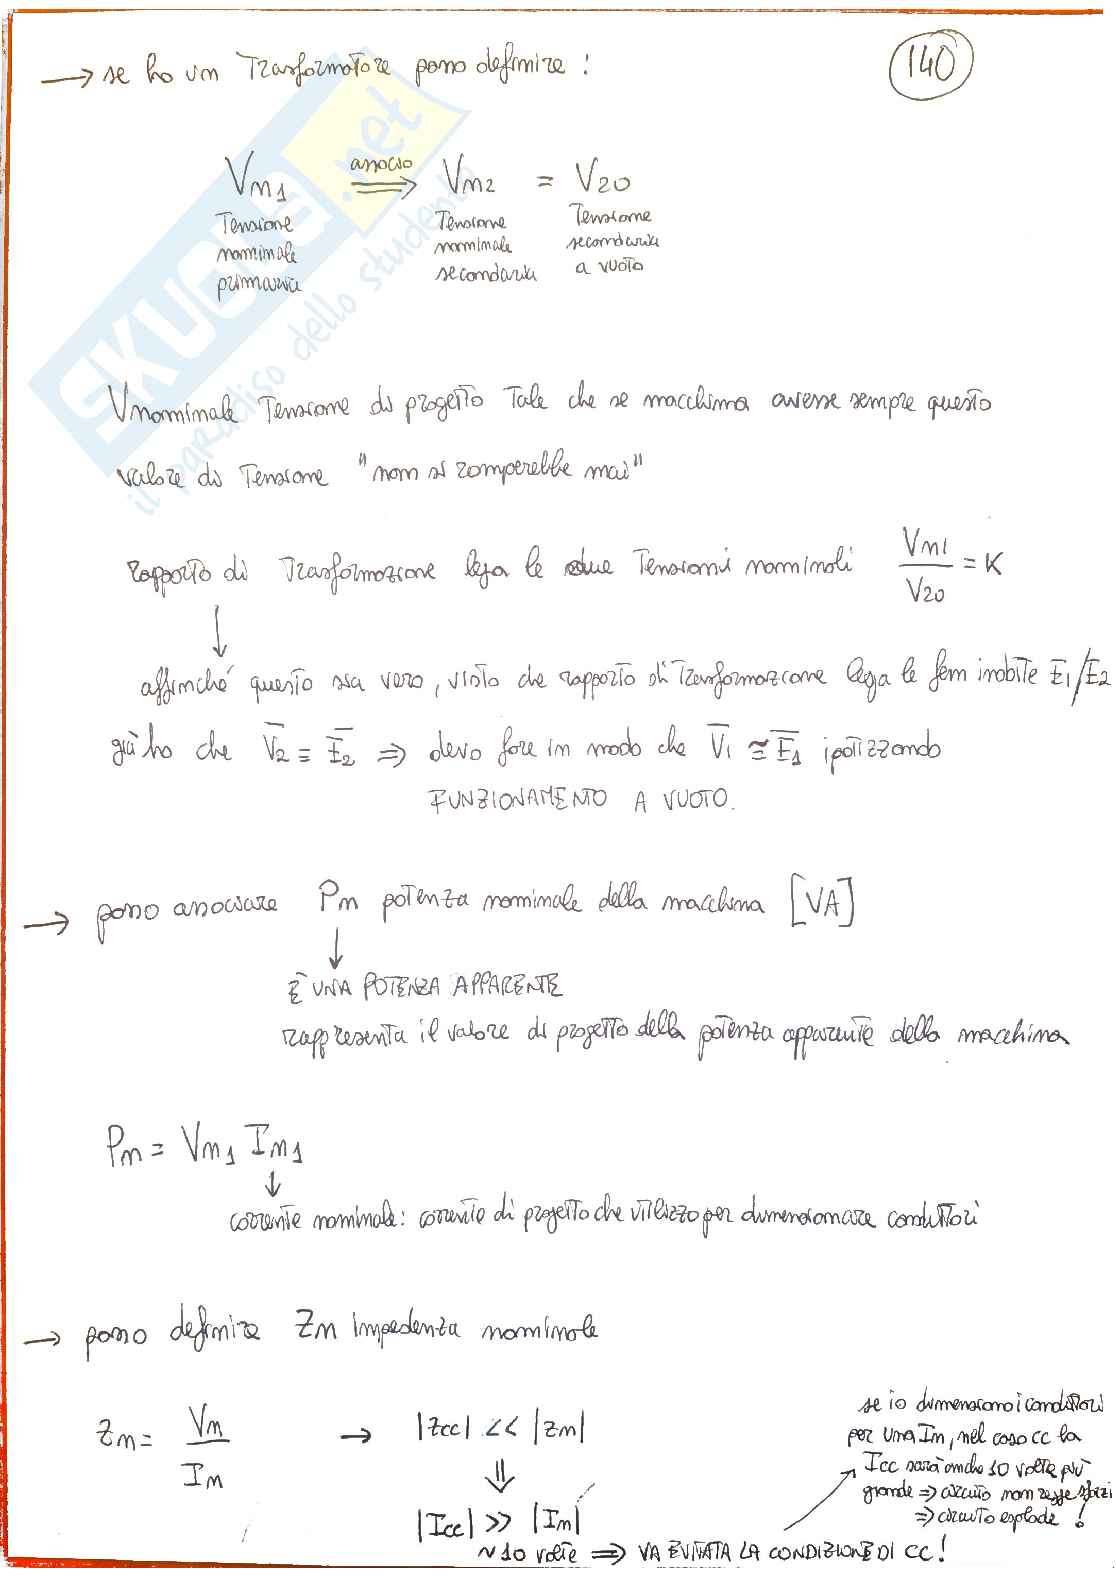 → se ho un Trasformatore posso definire :
140
Vn1 associo ⟹ Vn2 = V20
Tensione nominale primaria
Tensione nominale secondaria
Tensione secondaria a vuoto
SKUOLA.net
il paradiso dello studente
Vnominale Tensione di progetto Tale che se macchina avesse sempre questo
valore di Tensione "non si romperebbe mai"
rapporto di Trasformazione lega le due Tensioni nominali Vn1/V20 = K
↓
affinché questo sia vero, visto che rapporto di Trasformazione lega le fem indotte E1/E2
già ho che V̅2 ≡ E̅2 ⇒ devo fare in modo che V̅1 ≅ E̅1 ipotizzando
FUNZIONAMENTO A VUOTO.
→ posso associare Pn potenza nominale della macchina [VA]
↓
È UNA POTENZA APPARENTE
rappresenta il valore di progetto della potenza apparente della macchina
Pn = Vn1 In1
↓
corrente nominale: corrente di progetto che utilizzo per dimensionare conduttori
→ posso definire Zn impedenza nominale
Zn = Vn/In → |Zcc| << |Zn|
⇓
|Icc| >> |In|
~10 volte ⟹ VA EVITATA LA CONDIZIONE DI CC!
se io dimensiono i conduttori
per una In, nel caso cc la
Icc sarà anche 10 volte più
grande ⇒ circuito non regge sforzi
⇒ circuito esplode !